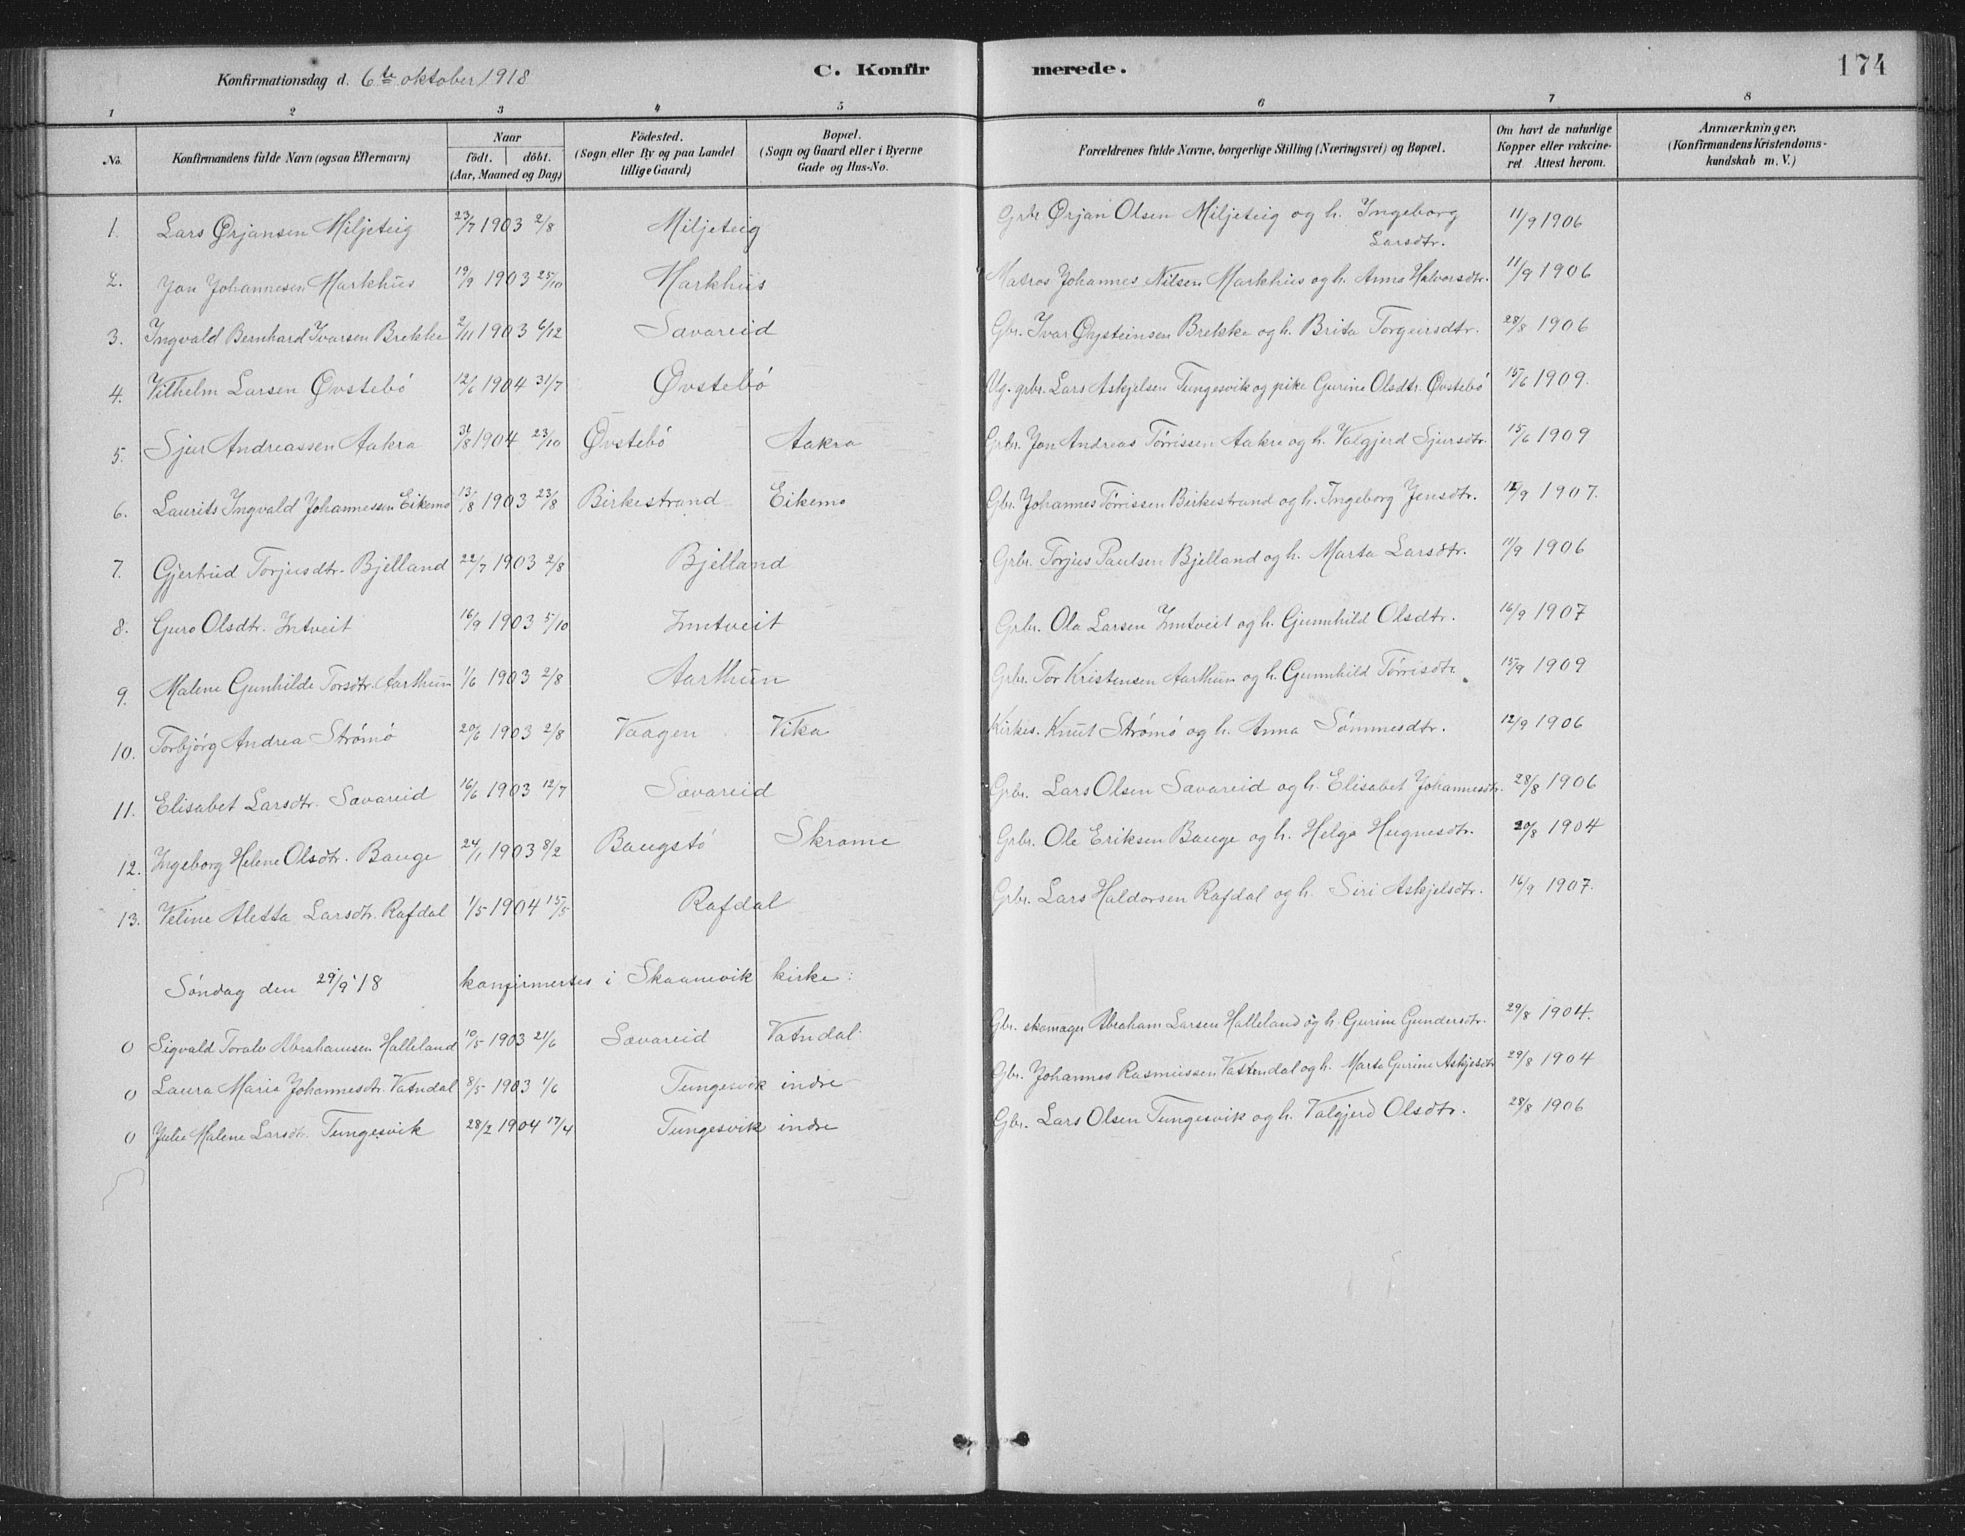 Konfirmationsdag d. 6te oktober 1918 C. Konfirmerede. 174
1 2 3 4 5 6 7 8
No. Konfirmandens fulde Navn (ogsaa Efternavn) Naar födt. döbt. (Aar, Maaned og Dag) Födested. (Sogn eller By og paa Landet tillige Gaard) Bopæl. (Sogn og Gaard eller i Byerne Gade og Hus-No. Forældrenes fulde Navne, borgerlige Stilling (Næringsvei) og Bopæl. Om havt de naturlige Kopper eller vakcineret. Attest herom. Anmærkninger. (Konfirmandens Kristendomskundskab m. V.)
1. Lars Ørjansen Miljeteig 23/7 1903 2/8 Miljeteig Grbr Ørjan Olsen Miljeteig og h. Ingeborg Larsdtr. 11/9 1906
2. Jon Johannesen Markhus 19/9 1903 25/10 Markhus Matros Johannes Nilsen Markhus og h. Anna Halvorsdtr. 11/9 1906
3. Ingvald Bernhard Ivarsen Brekke 2/11 1903 6/12 Sævareid Gbr. Ivar Øysteinsen Brekke og h. Brita Torgeirsdtr. 28/8 1906
4. Vilhelm Larsen Øvstebö 12/6 1904 31/7 Øvstebö Ug. grbr. Lars Askjelsen Tungesvik og pike Gurine Olsdtr. Øvstebö 15/6 1909.
5. Sjur Andreassen Aakra 31/8 1904 23/10 Øvstebö Aakra Grbr. Jon Andreas Tørrissen Aakre og h. Valgjerd Sjursdtr. 15/6 1909
6. Laurits Ingvald Johannessen Eikemo 13/8 1903 23/8 Birkestrand Eikemo Gbr. Johannes Tørrissen Birkestrand og h. Ingeborg Jensdtr. 12/9 1907.
7. Gjertrud Torjusdtr. Bjelland 22/7 1903 2/8 Bjelland Grbr. Torjus Paulsen Bjelland og h. Marta Larsdtr. 11/9 1906
8. Guro Olsdtr. Intveit 16/9 1903 5/10 Inntveit Grbr. Ola Larsen Inntveit og h. Gunnhild Olsdtr. 16/9 1907
9. Malene Gunhilde Torsdtr. Aarthun 1/6 1903 2/8 Aarthun Grbr. Tor Kristensen Aarthun og h. Gunnhild Tørrisdtr. 15/9 1909
10. Torbjörg Andrea Strömö 20/6 1903 2/8 Vaagen Vika Kirkes. Knut Strömö og h. Anna Sømmesdtr. 12/9 1906
11. Elisabet Larsdtr. Sævareid 16/6 1903 12/7 Sævareid Grbr. Lars Olsen Sævareid og h. Elisabet Johannesdtr. 28/8 1906
12. Ingeborg Helene Olsdtr. Bauge 24/1 1903 8/2 Baugstö Skrome Grbr. Ole Eriksen Bauge og h. Helga Hugnesdtr. 20/8 1904
13. Veline Aletta Larsdtr. Rafdal 1/5 1904 15/5 Rafdal Grbr. Lars Haldorsen Rafdal og h. Siri Askjelsdtr. 16/9 1907.
Søndag den 29/9 18 konfirmertes i Skaanevik kirke:
0 Sigvald Toralv Abrahamsen Halleland 10/5 1903 21/6 Sævareid Vatndal Gbr. skomager Abraham Larsen Halleland og h. Gurine Gundersdtr. 29/8 1904.
0 Laura Maria Johannesdtr. Vatndal 8/5 1903 1/6 Tungesvik indre Gbr. Johannes Rasmussen Vattendal og h. Marta Gurine Askjesdtr 29/8 1904
0 Julie Malene Larsdtr. Tungesvik 28/2 1904 17/4 Tungesvik indre Gbr. Lars Olsen Tungesvik og h. Valgjerd Olsdtr. 28/8 1906